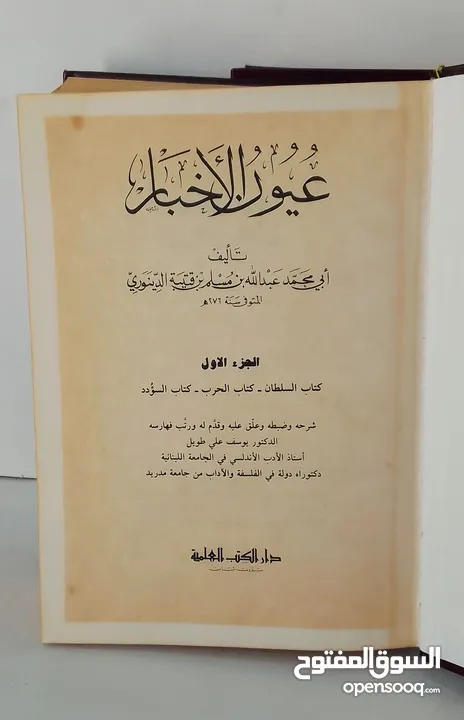 عُيُونُ الأَخْبَار
تأليف
أبي محمد عبد الله بن مسلم بن قتيبة الدينوري
المتوفى سنة ٢٧٦ هـ
الجزء الاول
كتاب السلطان - كتاب الحرب - كتاب السؤدد
شرحه وضبطه وعلّق عليه وقدّم له ورتّب فهارسه
الدكتور يوسف علي طويل
أستاذ الأدب الأندلسي في الجامعة اللبنانية
دكتوراه دولة في الفلسفة والآداب من جامعة مدريد
دار الكتب العلمية
بيروت - لبنان
السوق المفتوح
opensooq.com